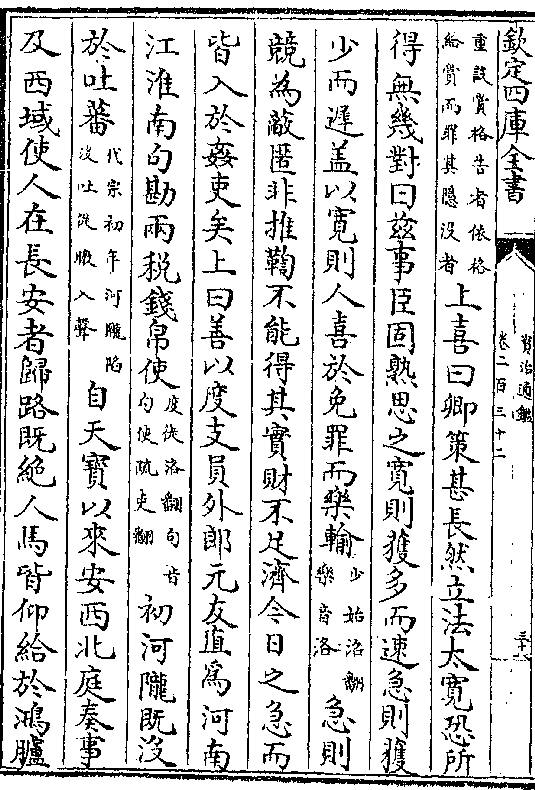 欽定四庫全書
資治通鑑
卷二百三十二
重設賞格告者依格
給賞而罪其隱没者
上喜曰卿策甚長然立法太寛恐所
得無幾對曰兹事臣固熟思之寛則獲多而速急則獲
少而遲盖以寛則人喜於免罪而樂輸
少始沼翻
樂音洛
急則
競為敵匿非推鞫不能得其實財不足濟今日之急而
皆入於姦吏矣上曰善以度支員外郎元友直為河南
江淮南句勘兩税錢帛使
度徒洛翻句音
句使疏吏翻
初河隴既没
於吐蕃
代宗初年河隴陷
没吐從暾入聲
自天寶以來安西北庭奏事
及西域使人在長安者歸路既絶人馬皆仰給於鴻臚